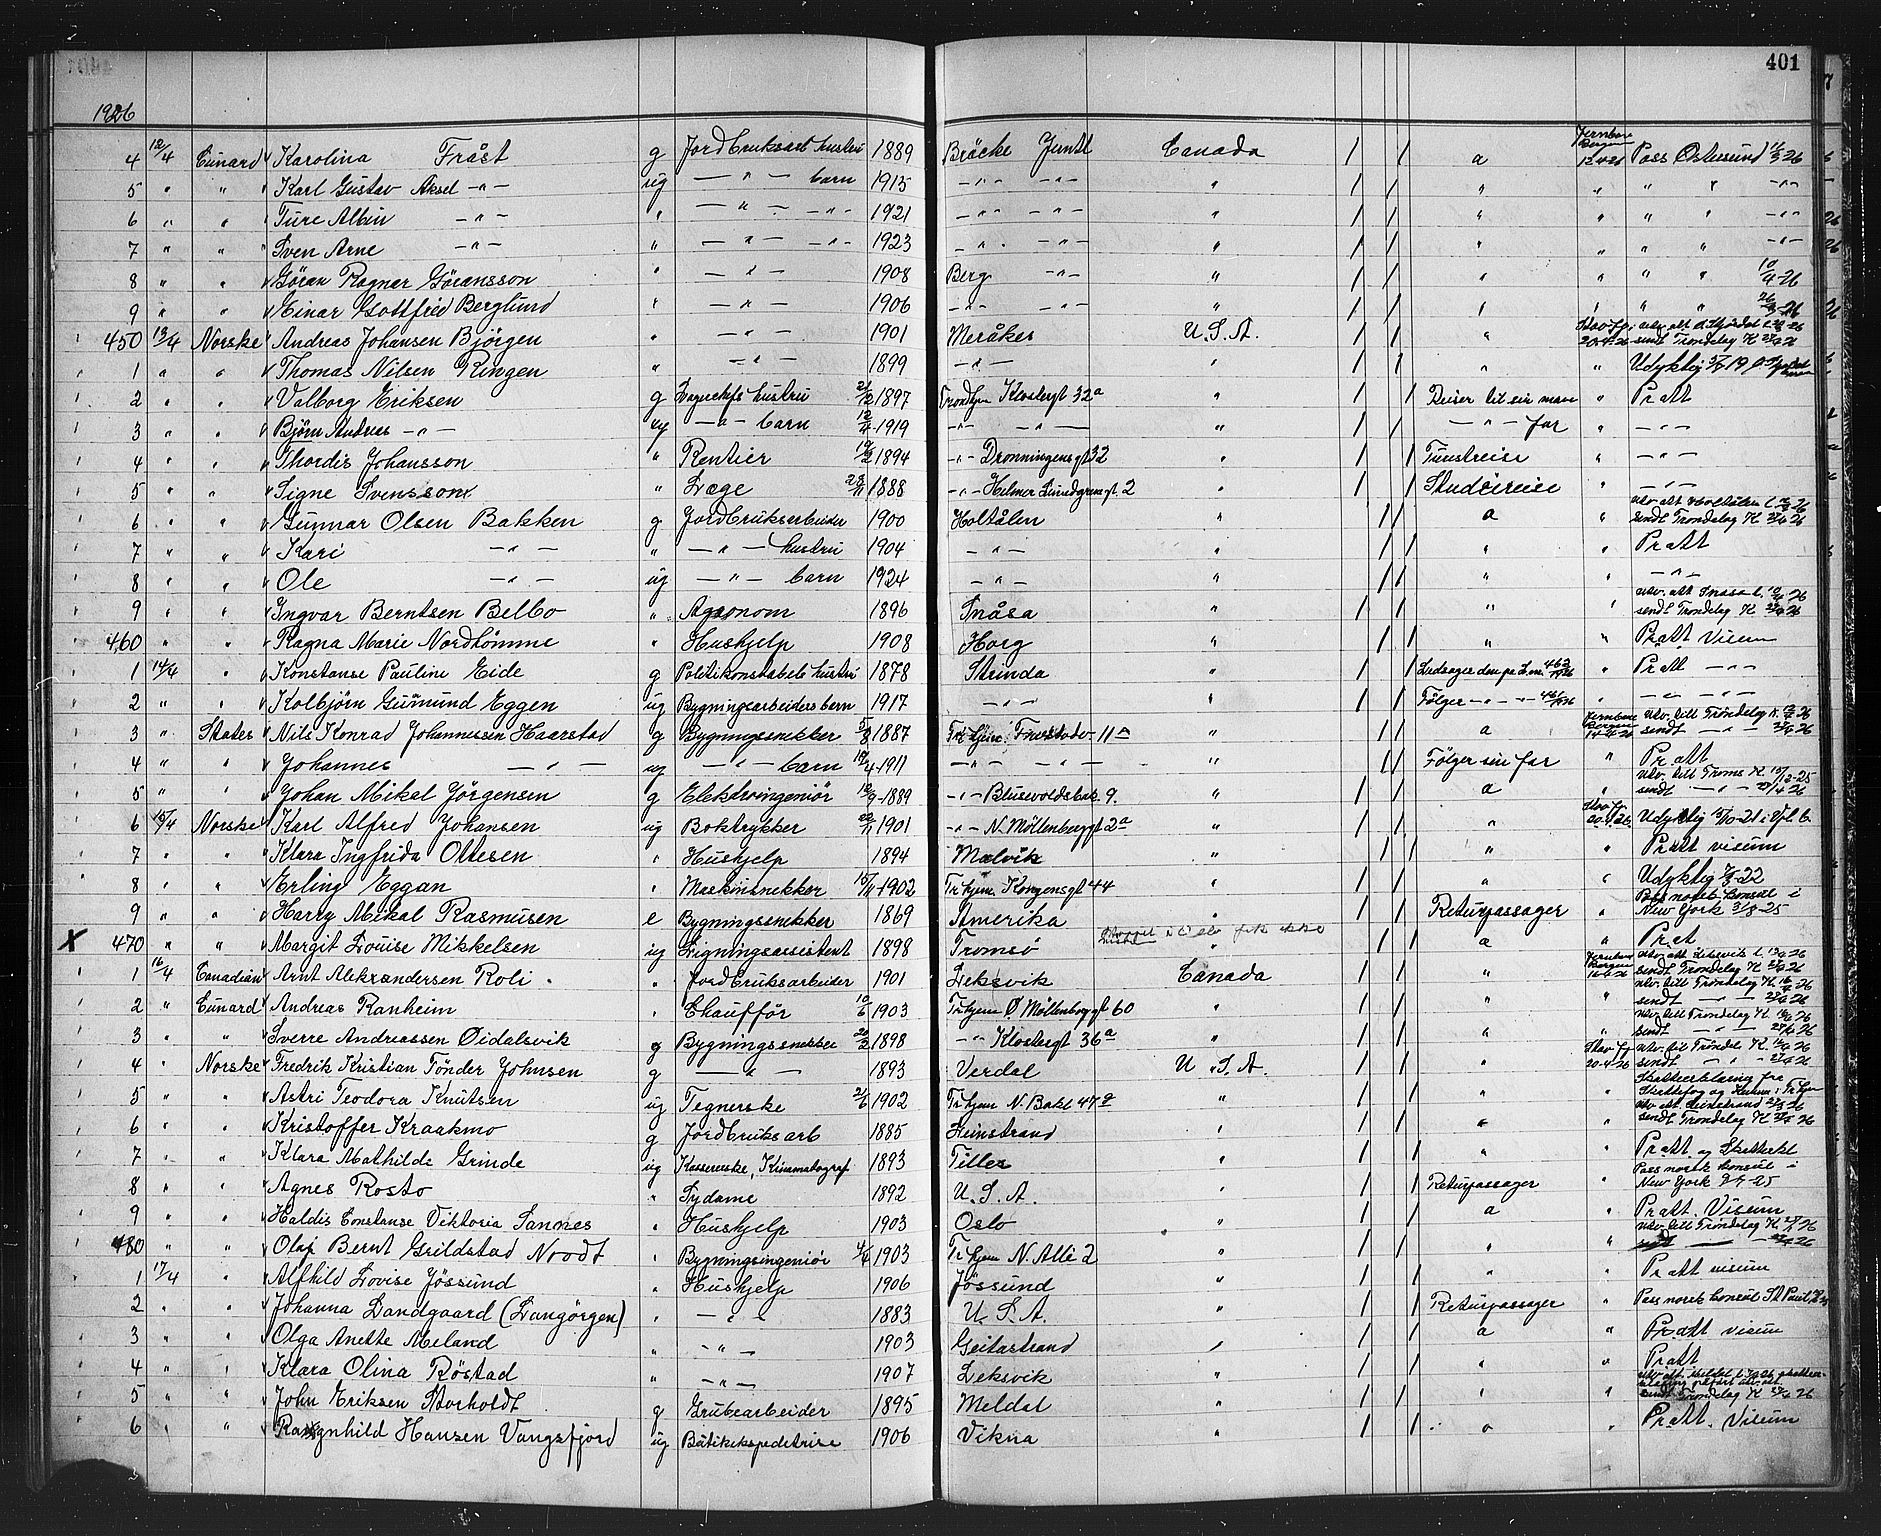 401
1926
4 12/4 Cunard Karolina Fråst g Jordbruksarb hustru 1889 Bräcke Jemtl Canada / / a Jernbane Bergen 12-4-26 Pass Östersund 16/3 26
5 " " Karl Gustav Aksel -"- ug -"- barn 1915 -"- -"- " / / " " " " -"-
6 " " Ture Albin -"- " -"- -"- 1921 -"- -"- " / / " " " " -"-
7 " " Sven Arne -"- " -"- -"- 1923 -"- -"- " / / " " " " -"-
8 " " Göran Ragnar Göransson " -"- 1908 Berg -"- " / / " " " " 10/4-26
9 " " Einar Gottfred Berglund " -"- 1906 -"- -"- " / / " " " " 26/3-26
450 13/4 Norske Andreas Johansen Bjørgen " -"- 1901 Meråker U.S.A. / / " 20-4-26 sendt Trøndelag K 23/4 26
1 " " Thomas Nilsen Ringen " -"- 1899 -"- " / / " " Udyktig
2 " " Valborg Eriksen g hustru 21/12 1897 Trondhjem Klostergt 32a " / / Reiser til sin mann " Pr att
3 " " Bjørn Andreas -"- ug -"- barn 12/4-1919 -"- -"- " / / -"- far " -"-
4 " " Thordis Johansson " Rentier 19/2 1894 -"- Dronningensgt 32 " / / Turistreise " -"-
5 " " Signe Svensson " Læge 28/11 1888 -"- Helmer Lundgrensgt. 2 " / / Studiereise " -"-
6 " " Gunnar Olsen Bakken g Jordbruksarbeider 1900 Holtålen " / / a " utv. att Holtålen sendt Trøndelag K 23/4 26
7 " " Kari -"- " -"- hustru 1904 -"- " / / " " Pr att
8 " " Ole -"- ug -"- barn 1924 -"- " / / " " -"-
9 " " Ingvar Berntsen Belbo " Agronom 1896 Snåsa " / / " " utv. att Snåsa sendt Trøndelag K 23/4 26
460 " " Ragna Marie Nordtømme " Hushjelp 1908 Horg " / / " " Pr att Visum
1 14/4 " Konstanse Pauline Eide g Politikonstabels hustru 1878 Strinda " / / Ledsager " Pr att -"-
2 " " Kolbjørn Gumund Eggen ug Bygningsarbeiders barn 1917 -"- " / / Følger -"- " -"-
3 " States Nils Konrad Johannessen Haarstad g Bygningssnekker 5/8 1887 Tr hjem 11a " / / a Jernbane Bergen 14-4-26 utv. till Trøndelag K. sendt -"- 23/4 26
4 " " Johannes -"- ug -"- barn 1911 -"- -"- " / / Følger sin far " Pr att
5 " " Johan Mikal Jørgensen g Elektroingeniør 12/9-1889 -"- Blusevoldsbak. 9. " / / a " utv. till Troms K. 15/12-25 sendt -"- 23/4 26
6 15/4 Norske Karl Alfred Johansen ug Boktrykker 22/11 1901 -"- N. Møllenberggt 2a " / / " 20-4-26 Udyktig
7 " " Klara Ingfrida Ottesen " Hushjelp 1894 Malvik " / / " " Pr att visum
8 " " Erling Eggan " Maskinsnekker 15/11-1902 Tr hjem Kongensgt 44 " / / " " Udyktig
9 " " Harry Mikal Rasmusen e Bygningssnekker 1869 Amerika " / / Returpassager " Pass norsk konsul i New York 3/8-25
X 470 " " Margit Lovise Mikkelsen ug Ligningsassistent 1898 Tromsö " / / a " Pr at
1 16/4 Canadian Arnt Aleksandersen Roli " Jordbruksarbeider 1901 Leksvik Canada / / " Jernbane Bergen 16-4-26 utv. att Leksvik sendt Trøndelag K 23/4 26
2 " Cunard Andreas Ranheim " Chaufför 10/6 1903 Tr hjem Ø. Møllenberggt 60 " / / " " utv. till Trøndelag K. sendt -"- 23/4 26
3 " " Sverre Andreassen Øidalsvik g Bygningssnekker 20/2 1898 -"- Klostergt 36a " / / " " utv. till Trøndelag K sendt -"- 23/4 26
4 " Norske Fredrik Kristian Tønder Johnsen g -"- 1893 Verdal U.S.A. / / " 20-4-26 utv. til Trøndel K sendt " " 23/4 26
5 " " Astri Teodora Knutsen ug Tegnerske 21/6 1902 Tr hjem N. Bakl 47a " / / " " Skatteerklæring fra
6 " " Kristoffer Kraakmo g Jordbruksarb 1885 Leinstrand " / / " " utv. att. Leinstrand sendt Trøndelag K 23/4 26
7 " " Klara Mathilde Grinde ug Kassererske, Kinematograf 1893 Tiller " / / " " Pr att og Skatteerkl
8 " " Agnes Rosto " Sydame 1892 U.S.A. " / / Returpassager " Pass norsk konsul i New York
9 " " Haldis Constanse Viktoria Sannes " Hushjelp 1903 Oslo " / / a " Pr att. Visum
480 " " Olaf Bernt Grildstad Noodt " Bygningsingeniör 4/4 1903 Tr hjem N. Allé 2 " / / " " utv. till Trøndelag K.
1 17/4 " Alfhild Lovise Jössund " Hushjelp 1906 Jössund " / / " " Pr att visum
2 " " Johanna Landgaard (Langörgen) " -"- 1883 U.S.A. " / / Returpassager " Pass norsk konsul St Paul
3 " " Olga Anette Meland " -"- 1903 Geitastrand " / / a " Pr att visum
4 " " Klara Olina Röstad " -"- 1907 Leksvik " / / " " Pr att
5 " " John Eriksen Storholdt g Grubearbeider 1895 Meldal " / / " " sendt Trøndelag K 23/4 26
6 " " Ragnhild Hansen Vangsfjord ug Butikekspeditrise 1906 Vikna " / / " " Pr att. Visum